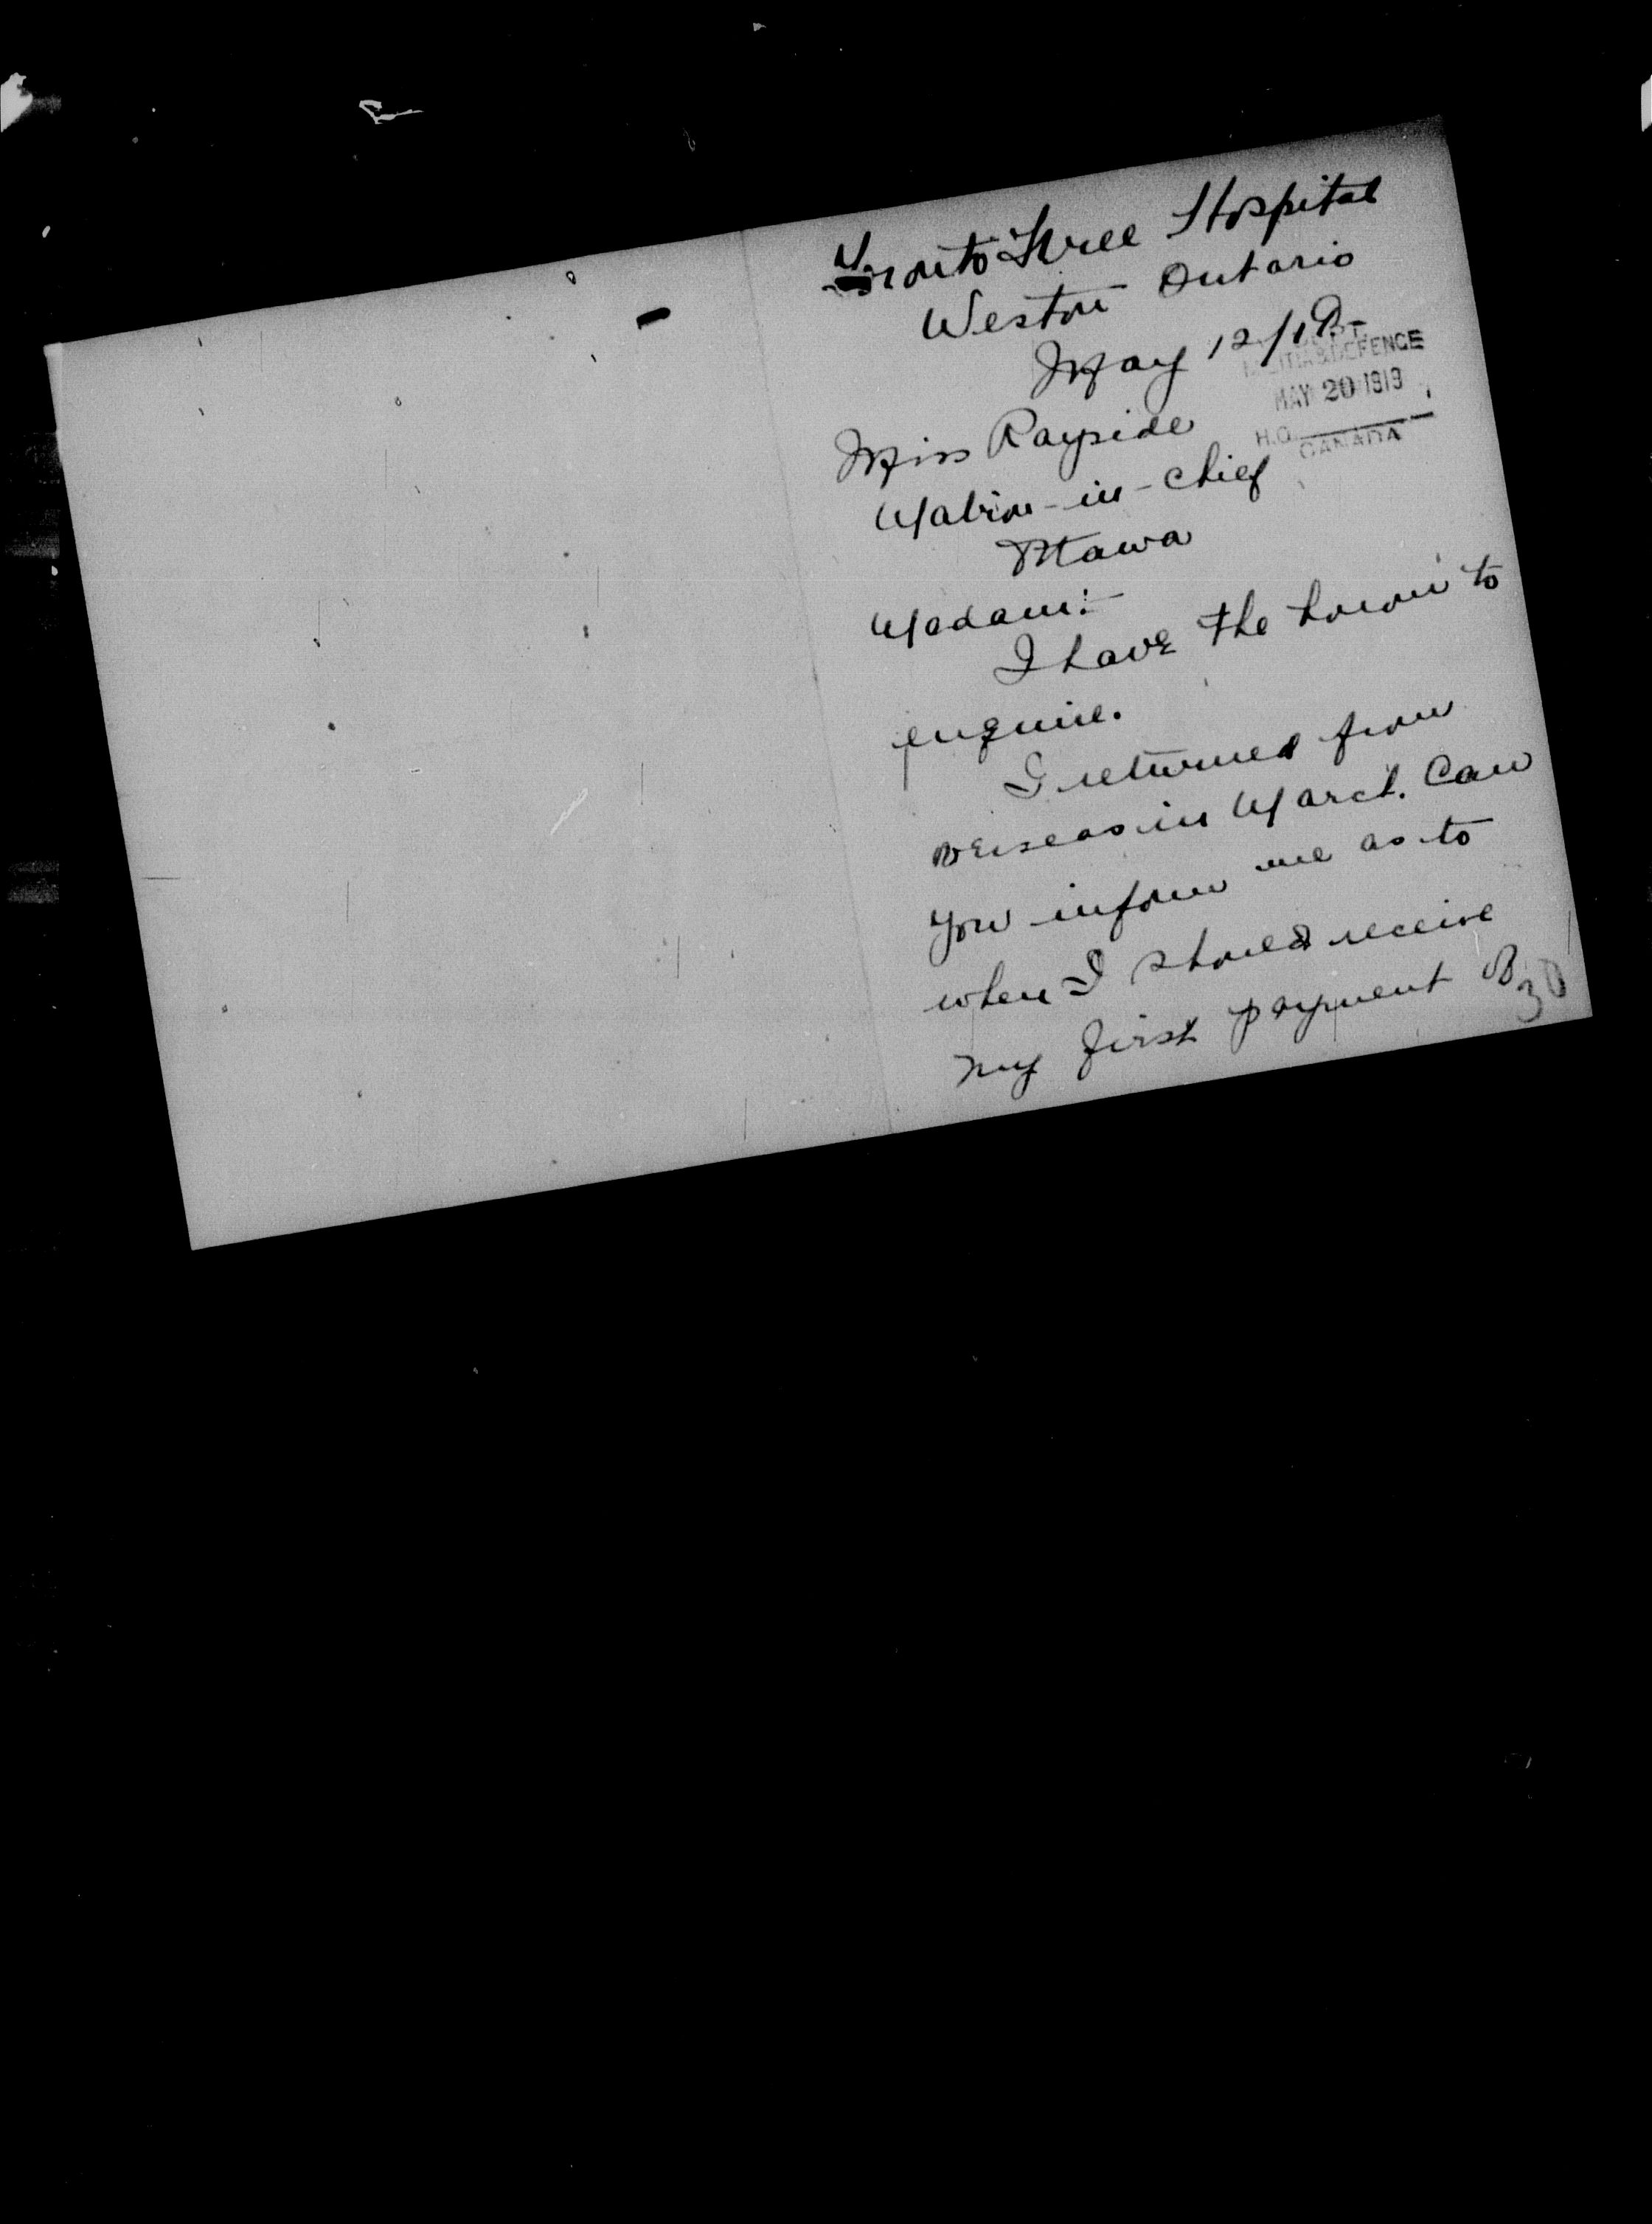 Toronto Free Hospital
Weston Ontario
May 12/19-
DEPT.
MILITIA & DEFENCE
MAY 20 1919
H.Q.
CANADA
Miss Rayside
Matron-in-Chief
Ottawa
Madam:-
I have the honour to
enquire.
I returned from
overseas in March. Can
you inform me as to
when I should receive
my first payment
30